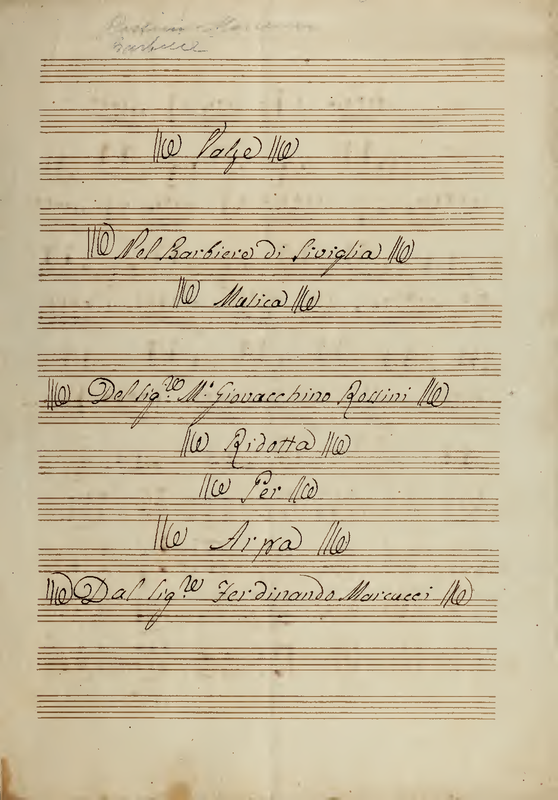 Valze
Nel Barbiere di Siviglia
Musica
Del Sig.re M.o Giovacchino Rossini
Ridotta
Per
Arpa
Dal Sig.re Ferdinando Marcucci